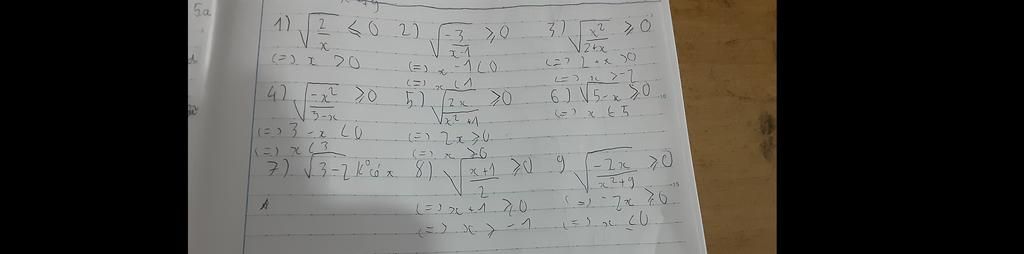 5a
1) √(2/x) ≤ 0 2) √(-3/(x-1)) ≥ 0 3) √(x²/(2+x)) ≥ 0
(=) x > 0 (=) x - 1 < 0 (=) 2 + x > 0
(=) x < 1 (=) x > -2
4) √(-x²/(3-x)) ≥ 0 5) √(2x/(x²+1)) ≥ 0 6) √(5-x) ≥ 0
(=) 3 - x < 0 (=) 2x ≥ 0 (=) x ≤ 5
(=) x < 3 (=) x ≥ 0
7) √(3-2 k° có x 8) √((x+1)/2) ≥ 0 9 √(-2x/(x²+9)) ≥ 0
(=) x + 1 ≥ 0 (=) - 2x ≥ 0
(=) x ≥ -1 (=) x ≤ 0